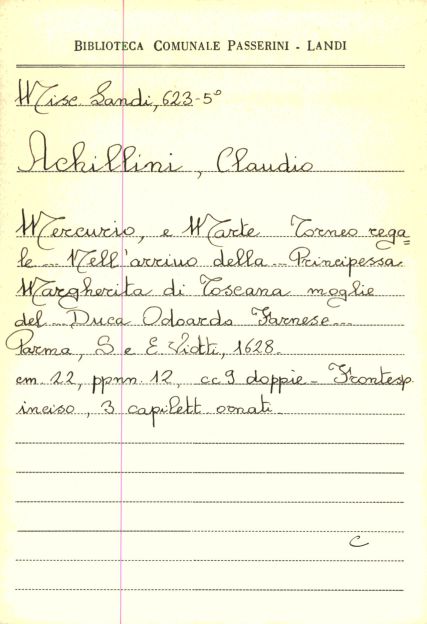 BIBLIOTECA COMUNALE PASSERINI - LANDI
Misc. Landi, 623-5°
Achillini, Claudio
Mercurio, e Marte Torneo rega=
le... Nell'arrivo della... Principessa
Margherita di Toscana moglie
del... Duca Odoardo Farnese...
Parma, S. e E. Viotti, 1628.
cm. 22, ppnn. 12, cc. 9 doppie - Frontesp.
inciso, 3 capilett. ornati.
C